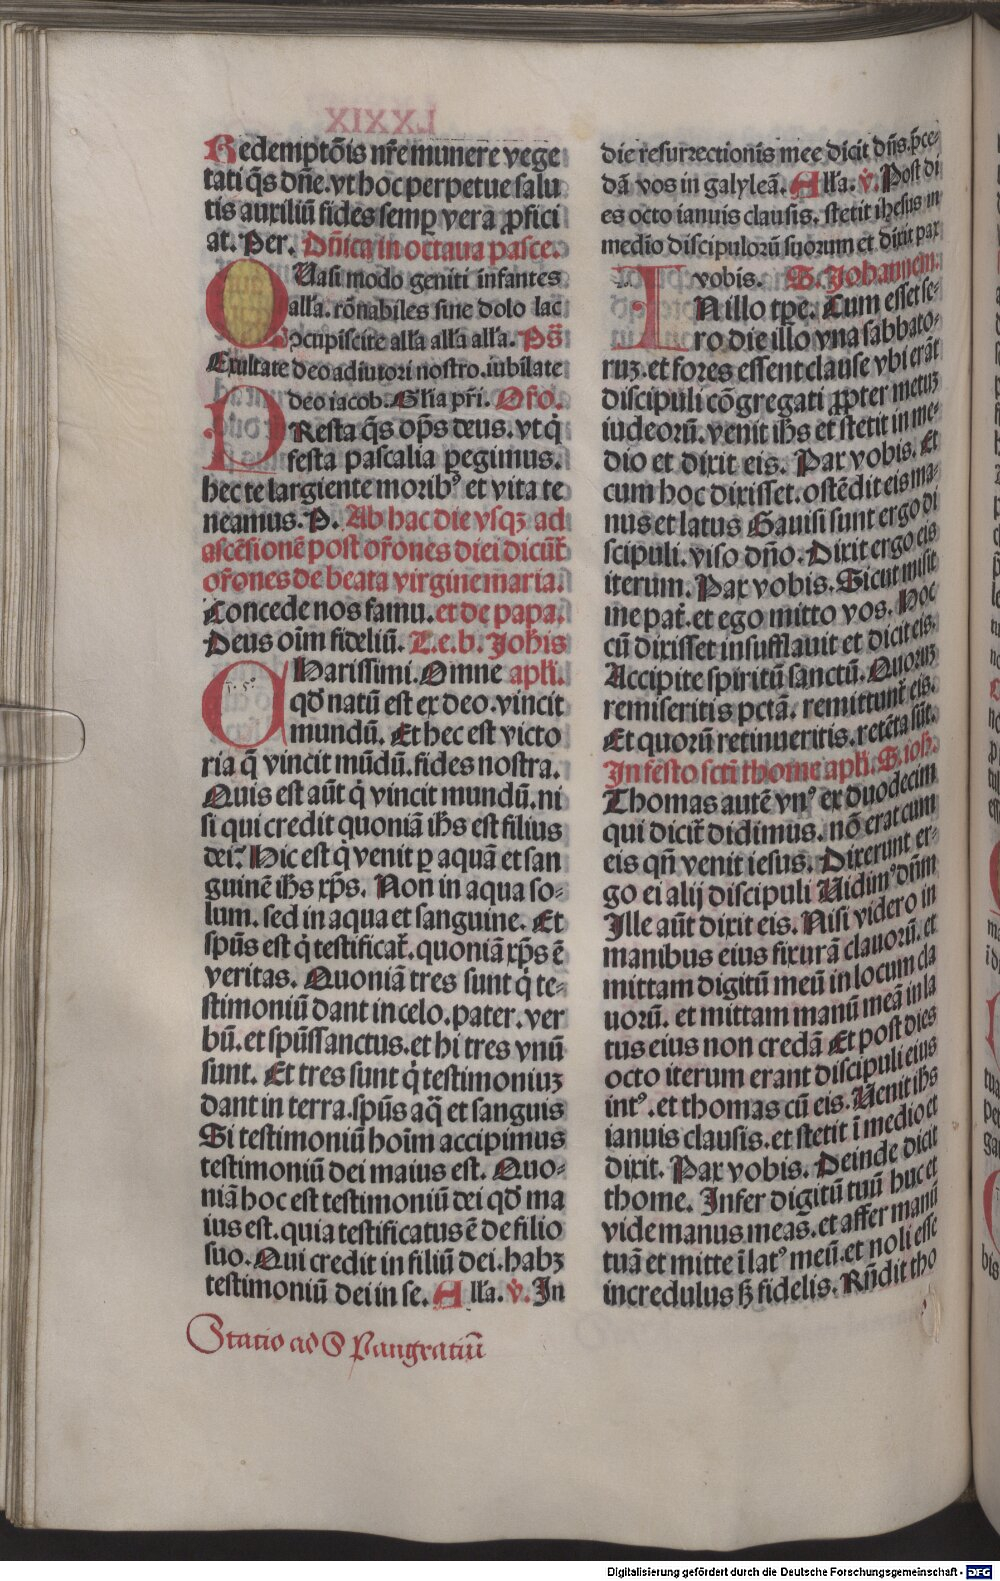 LXXIX
Redemptõis nr̃e munere vege
tati q̃s dñe. vt hoc perpetue salu
tis auxiliũ fides semꝑ vera ꝓfici
at. Per. Dñica in octaua pasce.
QUasi modo geniti infantes
alľa. rõnabiles sine dolo lac
ꝯcupiscite alľa alľa alľa. Ps̃
Exultate deo adiutori nostro. iubilate
deo iacob. Gľia pr̃i. Or̃o.
PResta q̃s op̃s deus. vt q̇
festa pascalia ꝑegimus.
hec te largiente moribꝰ et vita te
neamus. P. Ab hac die vsqꝫ ad
ascẽsionẽ post or̃ones diei dicũt̃
or̃ones de beata virgine maria.
Concede nos famu. et de papa.
Deus oĩm fideliũ. L. e. b. Joh̃is
CHarissimi. Omne apľi.
qđ natũ est ex deo. vincit
mundũ. Et hec est victo
ria q̃ vincit mũdũ. fides nostra.
Quis est aũt q̇ vincit mundũ. ni
si qui credit quoniã ih̃s est filius
dei? Hic est q̇ venit ꝑ aquã et san
guinẽ ih̃s xp̃s. Non in aqua so-
lum. sed in aqua et sanguine. Et
sp̃us est q̇ testificat̃. quoniã xp̃s ẽ
veritas. Quoniã tres sunt q̇ te-
stimoniũ dant in celo. pater. ver
bũ. et sp̃ussanctus. et hi tres vnũ
sunt. Et tres sunt q̇ testimoniuꝫ
dant in terra. sp̃us aq̃ et sanguis
Si testimoniũ hoĩm accipimus
testimoniũ dei maius est. Quo-
niã hoc est testimoniũ dei qđ ma
ius est. quia testificatus ẽ de filio
suo. Qui credit in filiũ dei. habꝫ
testimoniũ dei in se. Alľa. ṽ. In
Statio ad S Pangratiũ
die resurrectionis mee dicit dñs. p̃ce-
dã vos in galyleã. Alľa. ṽ. Post di
es octo ianuis clausis. stetit ihesus in
medio discipulorũ suorum et dixit pax
vobis. S. Johannem.
IN illo tp̃e. Cum esset se-
ro die illo vna sabbato-
ruꝫ. et fores essent clause vbi erãt
discipuli cõgregati ꝓpter metuꝫ
iudeorũ. venit ih̃s et stetit in me-
dio et dixit eis. Pax vobis. Et
cum hoc dixisset. ostẽdit eis ma-
nus et latus Gauisi sunt ergo di
scipuli. viso dño. Dixit ergo eis
iterum. Pax vobis. Sicut misit
me pat̃. et ego mitto vos. Hoc
cũ dixisset insufflauit et dicit eis.
Accipite spiritũ sanctũ. Quoruꝫ
remiseritis pctã. remittunt̃ eis.
Et quorũ retinueritis. retẽta sũt.
In festo scti thome apľi. S. ioh̃.
Thomas autẽ vnꝰ ex duodecim
qui dicit̃ didimus. nõ erat cum
eis qñ venit iesus. Dixerunt er-
go ei alij discipuli Uidimꝰ dñm
Ille aũt dixit eis. Nisi videro in
manibus eius fixurã clauorũ. et
mittam digitũ meũ in locum cla
uorũ. et mittam manũ meã in la
tus eius non credã Et post dies
octo iterum erant discipuli eius
intꝰ. et thomas cũ eis. Uẽnit ih̃s
ianuis clausis. et stetit ĩ medio et
dixit. Pax vobis. Deinde dicit
thome. Infer digitũ tuũ huc et
vide manus meas. et affer manũ
tuã et mitte ĩ latꝰ meũ. et noli esse
incredulus sꝫ fidelis. Rñdit tho
Digitalisierung gefördert durch die Deutsche Forschungsgemeinschaft - DFG